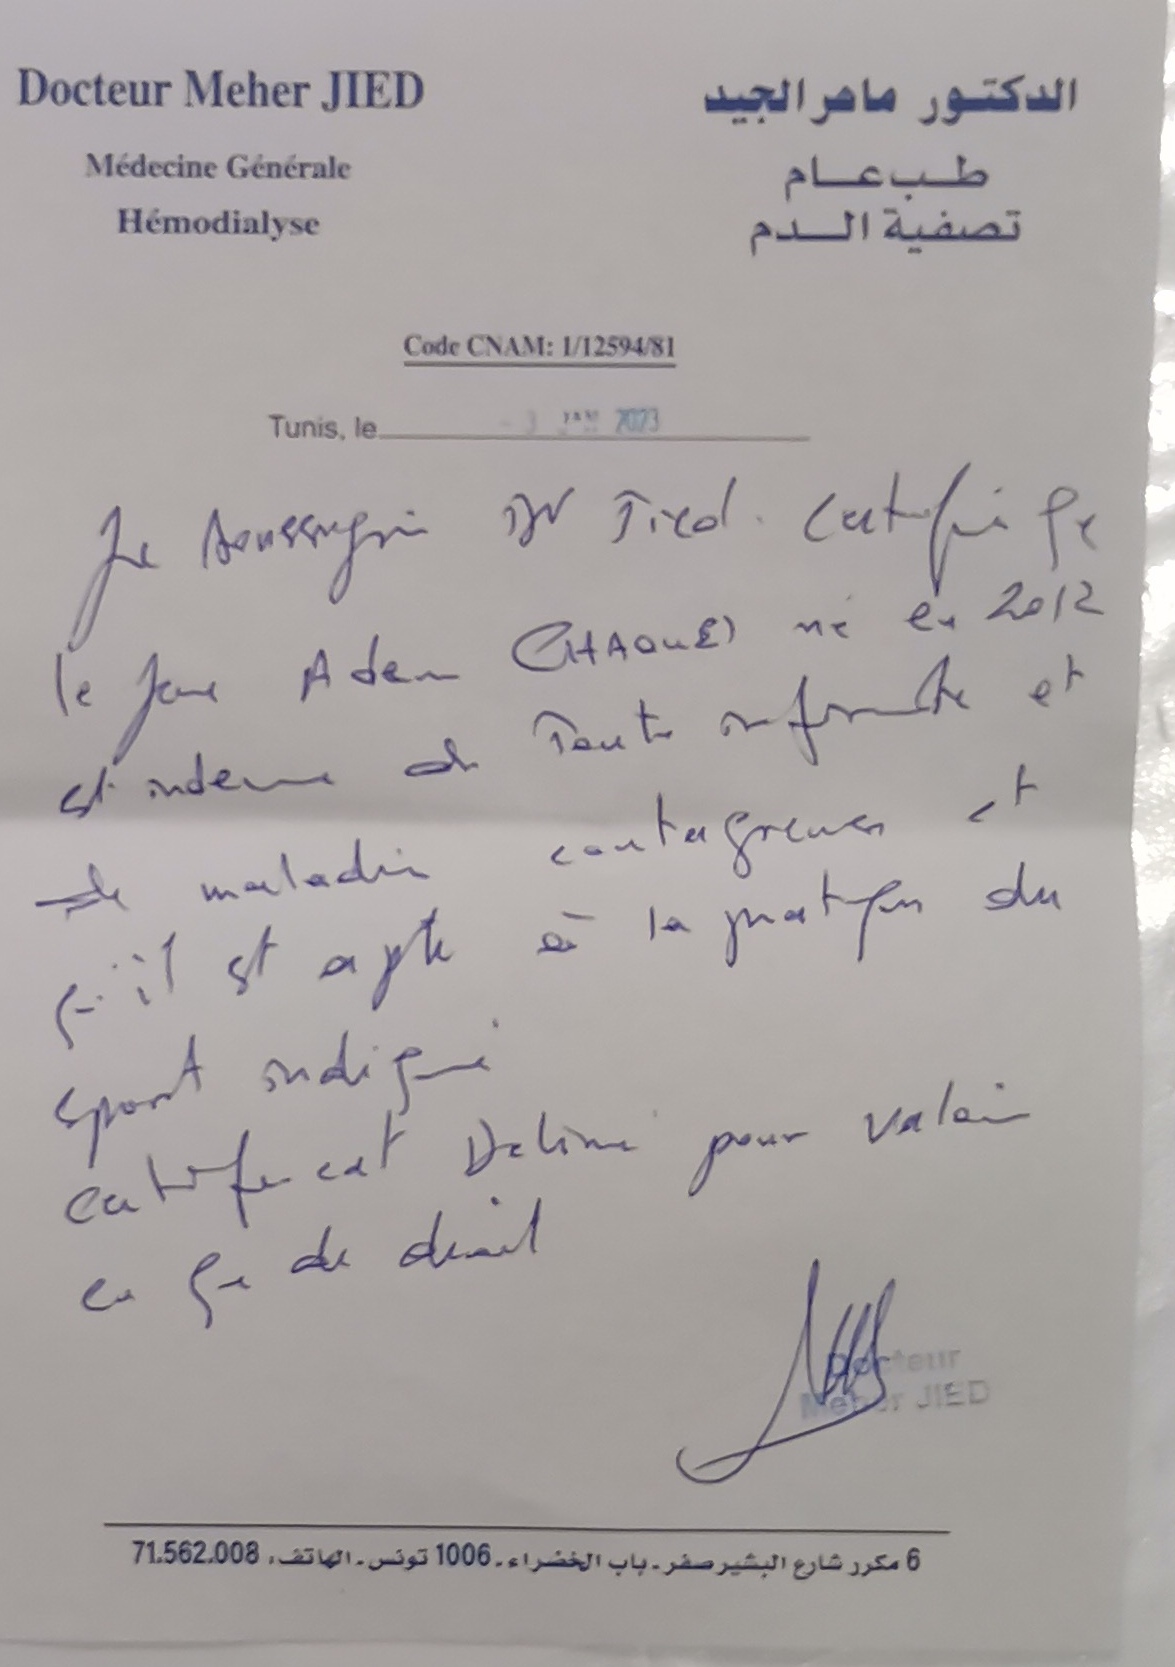 Docteur Meher JIED
Médecine Générale
Hémodialyse
الدكتور ماهر الجيد
طب عام
تصفية الدم
Code CNAM: 1/12594/81
Tunis, le - 3 JAN 2023
Je soussigné Dr Jied certifie que
le jeune Adem CHAOUEI né en 2012
est indemne de toute infirmité et
de maladies contagieuses et
qu'il est apte à la pratique du
sport indiqué
certificat Délivré pour valoir
ce que de droit
Docteur
Meher JIED
6 مكرر شارع البشير صفر - باب الخضراء - 1006 تونس - الهاتف، 71.562.008